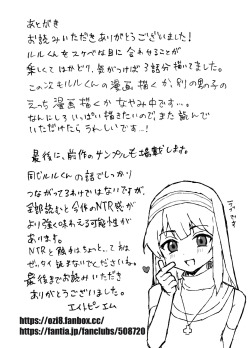 あとがき
お読みいただきありがとうございました!
ルルくんをスケベな目に合わせることが
楽しくてはかどり、気がつけば3話分描いてました。
この次もルルくんの漫画描くか、別の男の子の
えっち漫画描くかなやみ中です…。
なんにしろいっぱい描きたいので、また読んで
いただけたらうれしいです…!
最後に、前作のサンプルも掲載します。
同じルルくんの話でしっかり
つながってるわけではないですが、
全部読むと今作のNTR感が
より強く味わえる可能性が
あります。
NTRと触手はちょっと…て方は
ぜったい読まないでくださいね。
最後までお読みいただき
ありがとうございました。
エイトピーエム
https://ozi8.fanbox.cc/
https://fantia.jp/fanclubs/508720